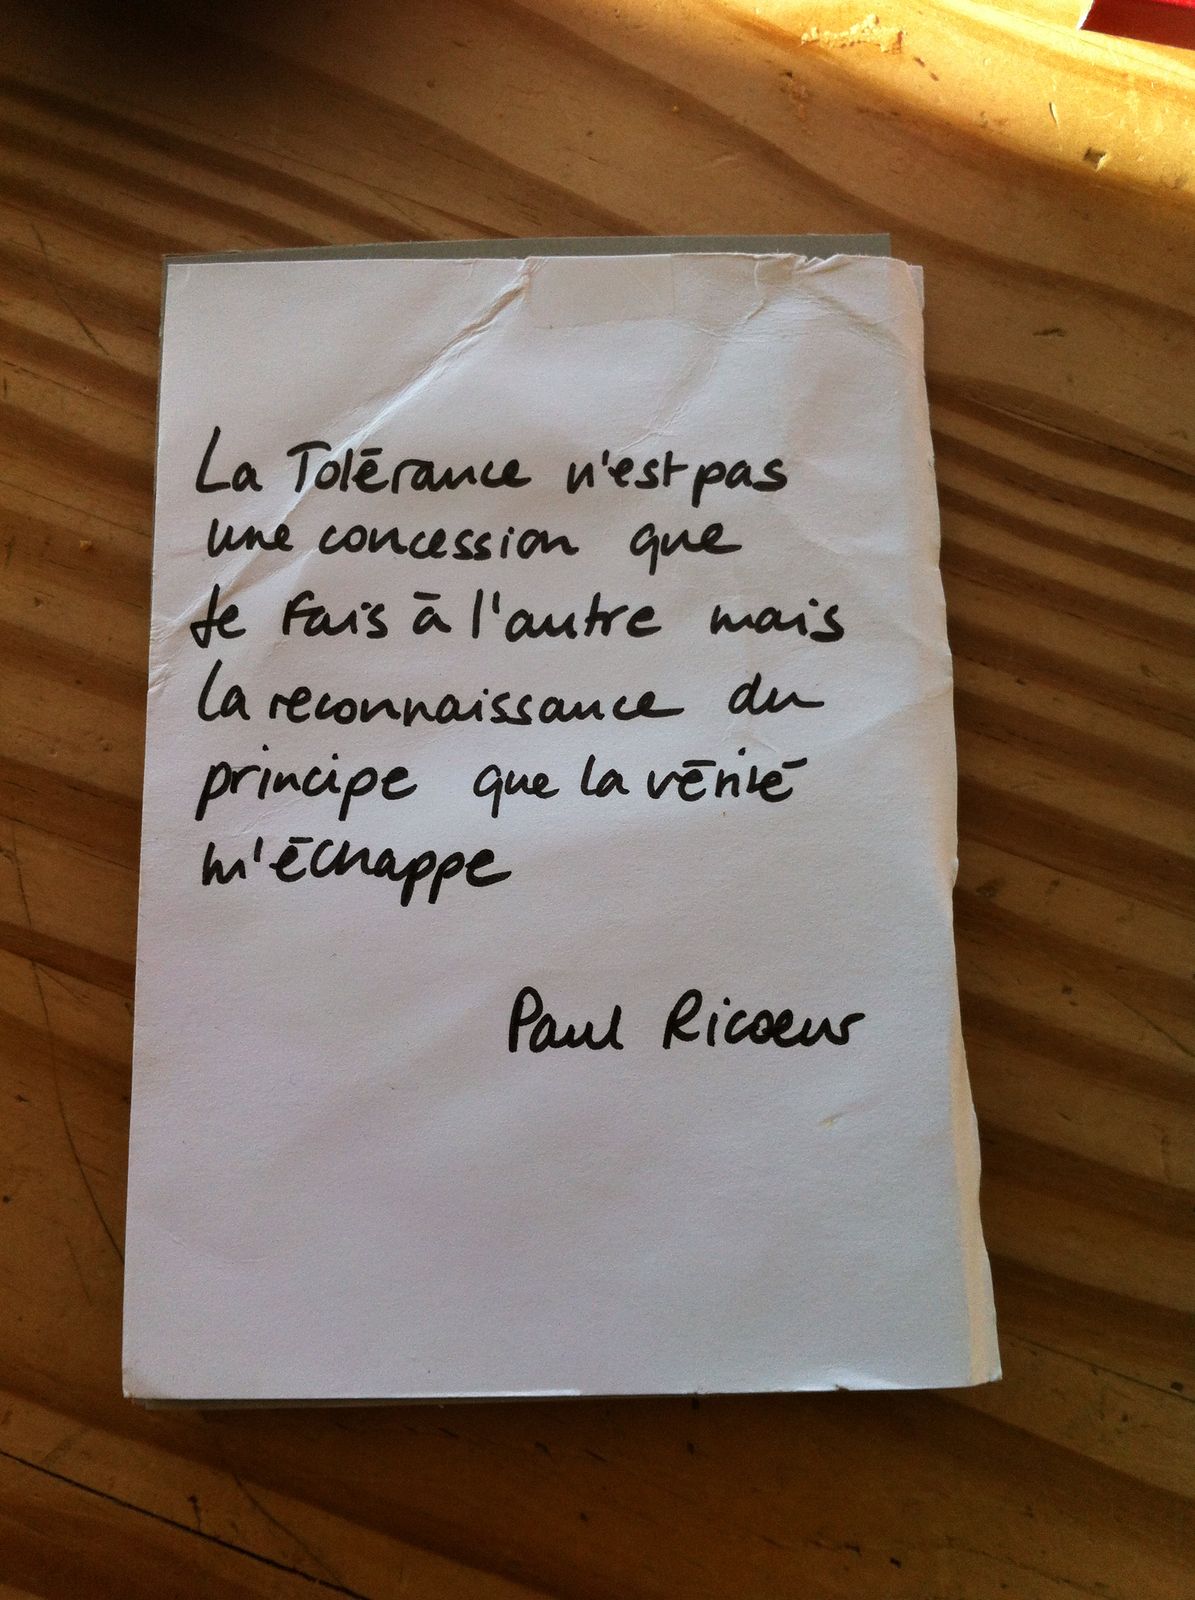 La Tolérance n'est pas
une concession que
je fais à l'autre mais
la reconnaissance du
principe que la vérité
m'échappe
Paul Ricœur